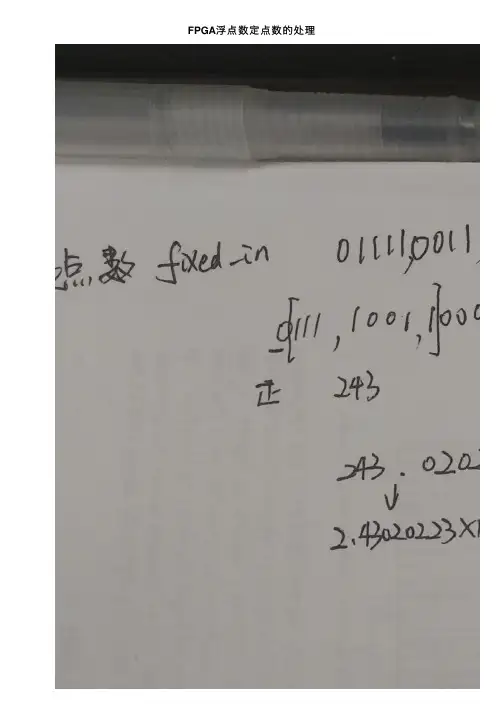 FPGA浮点数定点数的处理
点数 fixed_in 01111,0011,
0[111,1001,1]000
正 243
243.0202
↓
2.43020223×1